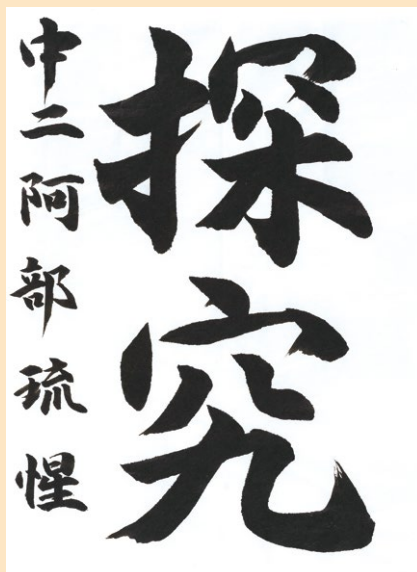 探究
中二阿部琉惺